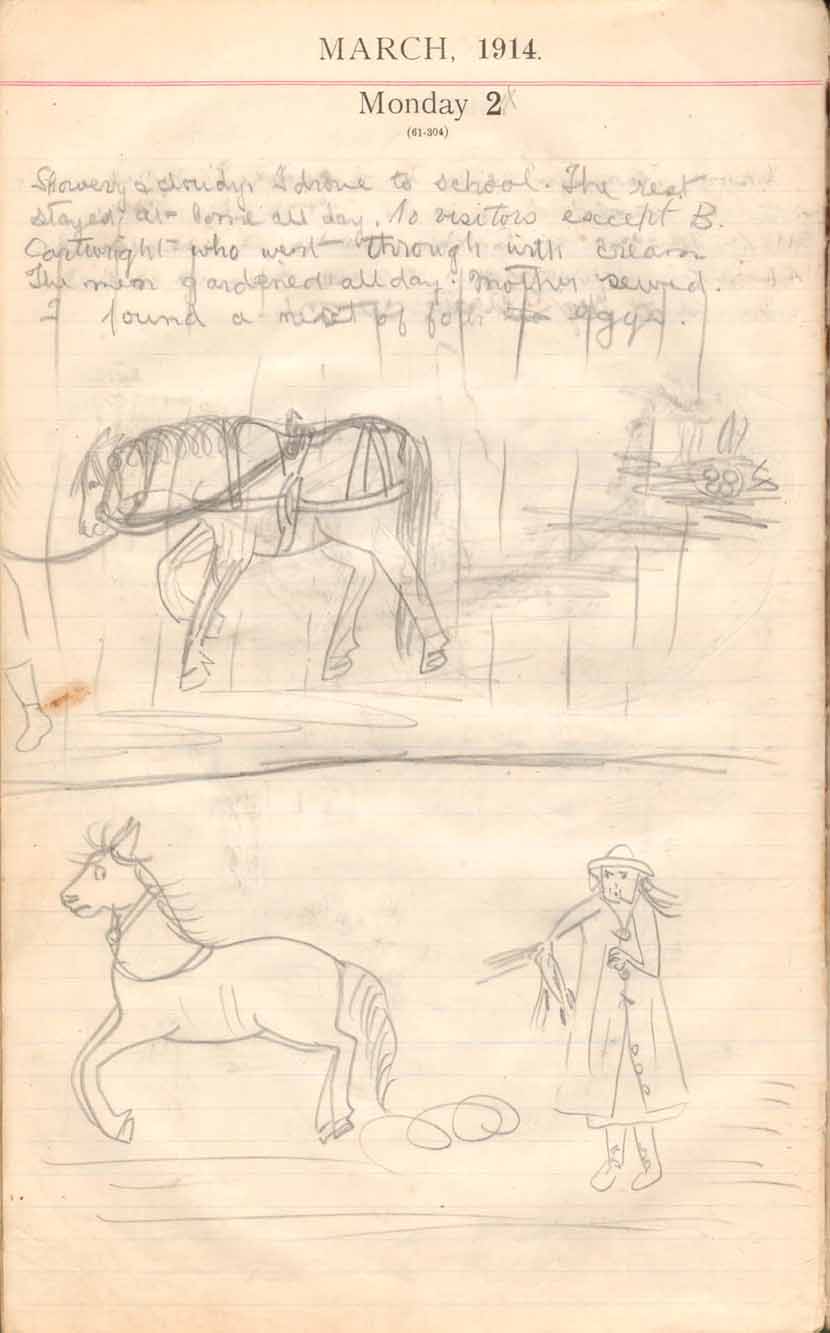 MARCH, 1914.
Monday 2
(61-304)
Showery & cloudy. I drove to school. The rest
stayed at home all day. No visitors except B.
Cartwright who went through with cream
The men gardened all day. Mother sewed.
I found a nest of four eggs.